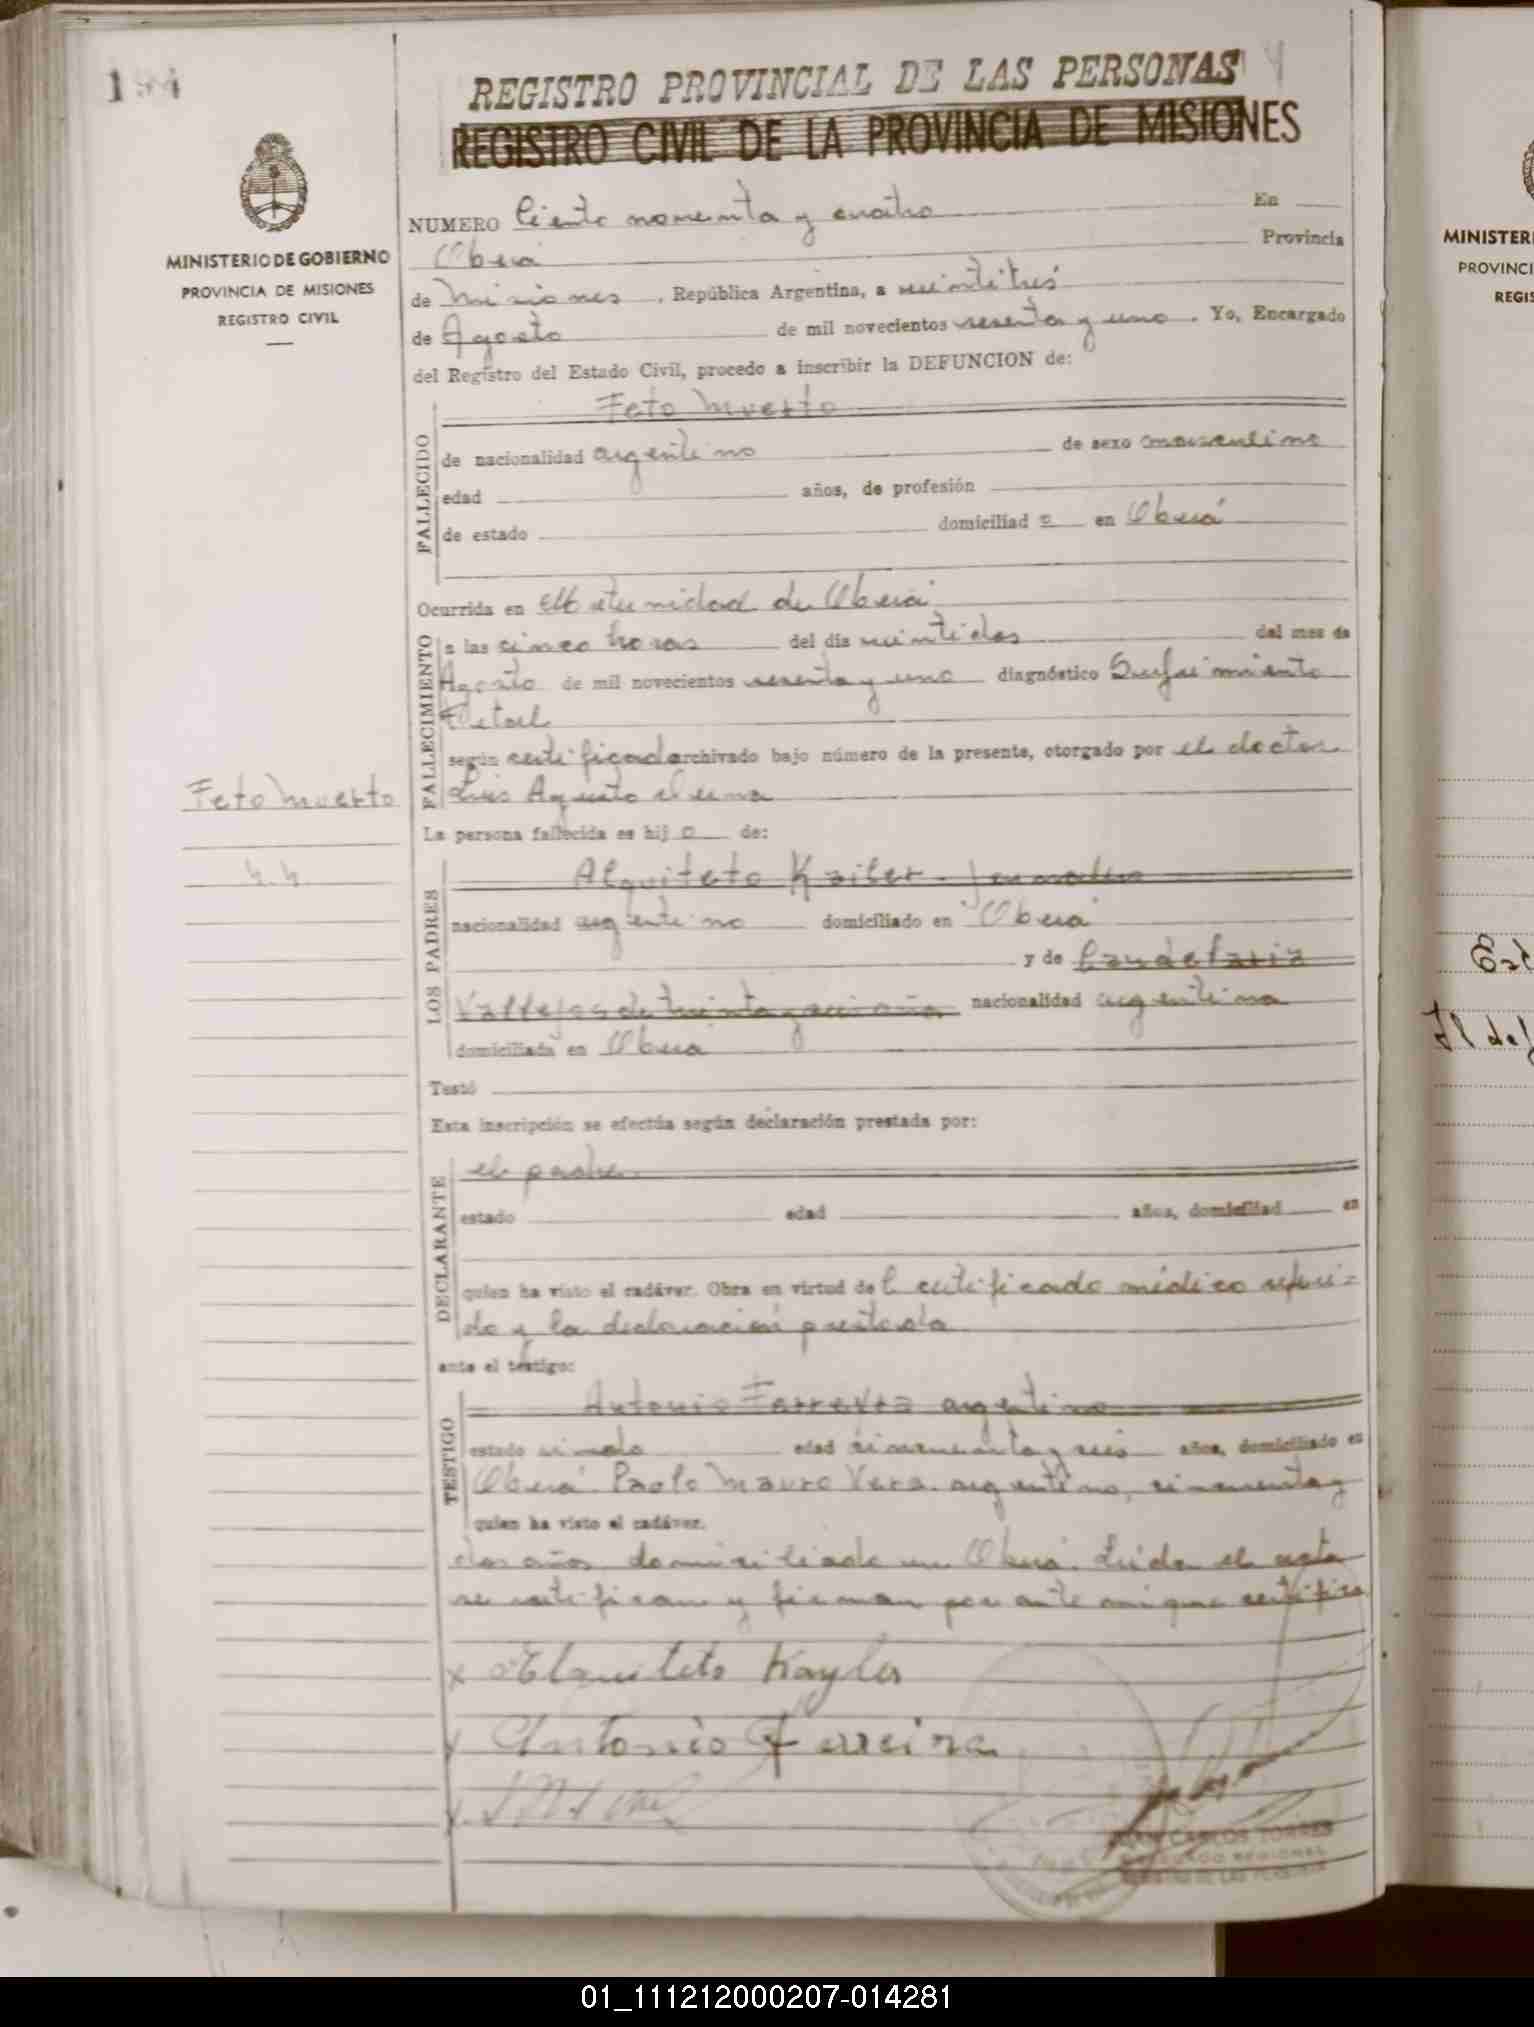 194
REGISTRO PROVINCIAL DE LAS PERSONAS
REGISTRO CIVIL DE LA PROVINCIA DE MISIONES
MINISTERIO DE GOBIERNO
PROVINCIA DE MISIONES
REGISTRO CIVIL
NUMERO Ciento noventa y cuatro En
Oberá Provincia
de Misiones, República Argentina, a veintitrés
de Agosto de mil novecientos sesenta y uno. Yo, Encargado
del Registro del Estado Civil, procedo a inscribir la DEFUNCION de:
FALLECIDO
Feto Muerto
de nacionalidad argentino de sexo masculino
edad años, de profesión
de estado domiciliad o en Oberá
FALLECIMIENTO
Ocurrida en Maternidad de Oberá
a las cinco horas del día veintidos del mes de
Agosto de mil novecientos sesenta y uno diagnóstico Sufrimiento
Fetal
según certificado archivado bajo número de la presente, otorgado por el doctor
Luis Agusto
Feto Muerto
La persona fallecida es hij o de:
LOS PADRES
Alquiteto Kailer
nacionalidad argentino domiciliado en Oberá
y de Candelaria
Vallejos de treinta y seis años nacionalidad argentina
domiciliada en Oberá
Testó
Esta inscripción se efectúa según declaración prestada por:
DECLARANTE
el padre
estado edad años, domiciliad en
quien ha visto el cadáver. Obra en virtud de l certificado médico referi-
do y la declaración prestada
ante el testigo:
TESTIGO
Antonio Farreyra argentino
estado edad cincuenta y seis años, domiciliado en
Oberá Paolo Mauro Vera argentino, cincuenta y
quien ha visto el cadáver.
dos años domiciliado en Oberá. Leida el acta
se ratifican y firman por ante mi que certifico
x Elquiteto Kayler
x Antonio Ferreira
JUAN CARLOS TORRES
DELEGADO REGIONAL
REGISTRO DE LAS PERSONAS
MINISTER
PROVINCI
REGIS
01_111212000207-014281